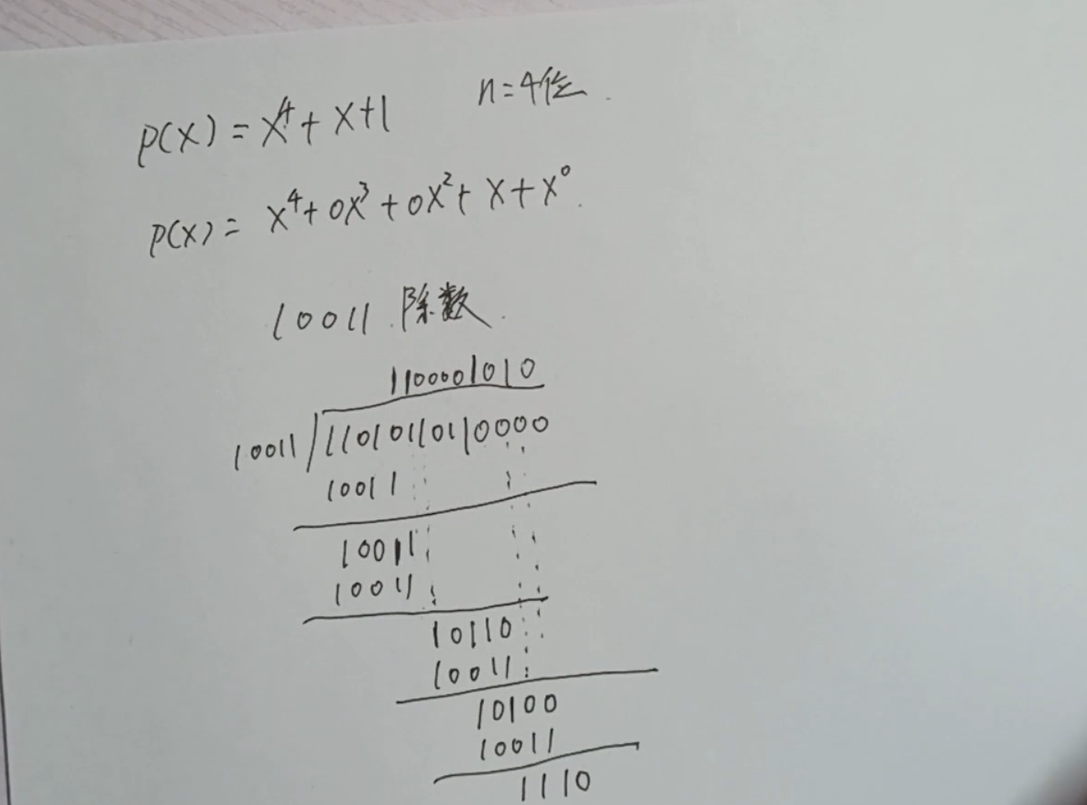 P(X) = X⁴ + X + 1 n = 4位.
P(X) = X⁴ + 0X³ + 0X² + X + X⁰.
10011 除数.
1100001010
10011 11010110110000
10011
10011
10011
10110
10011
10100
10011
1110